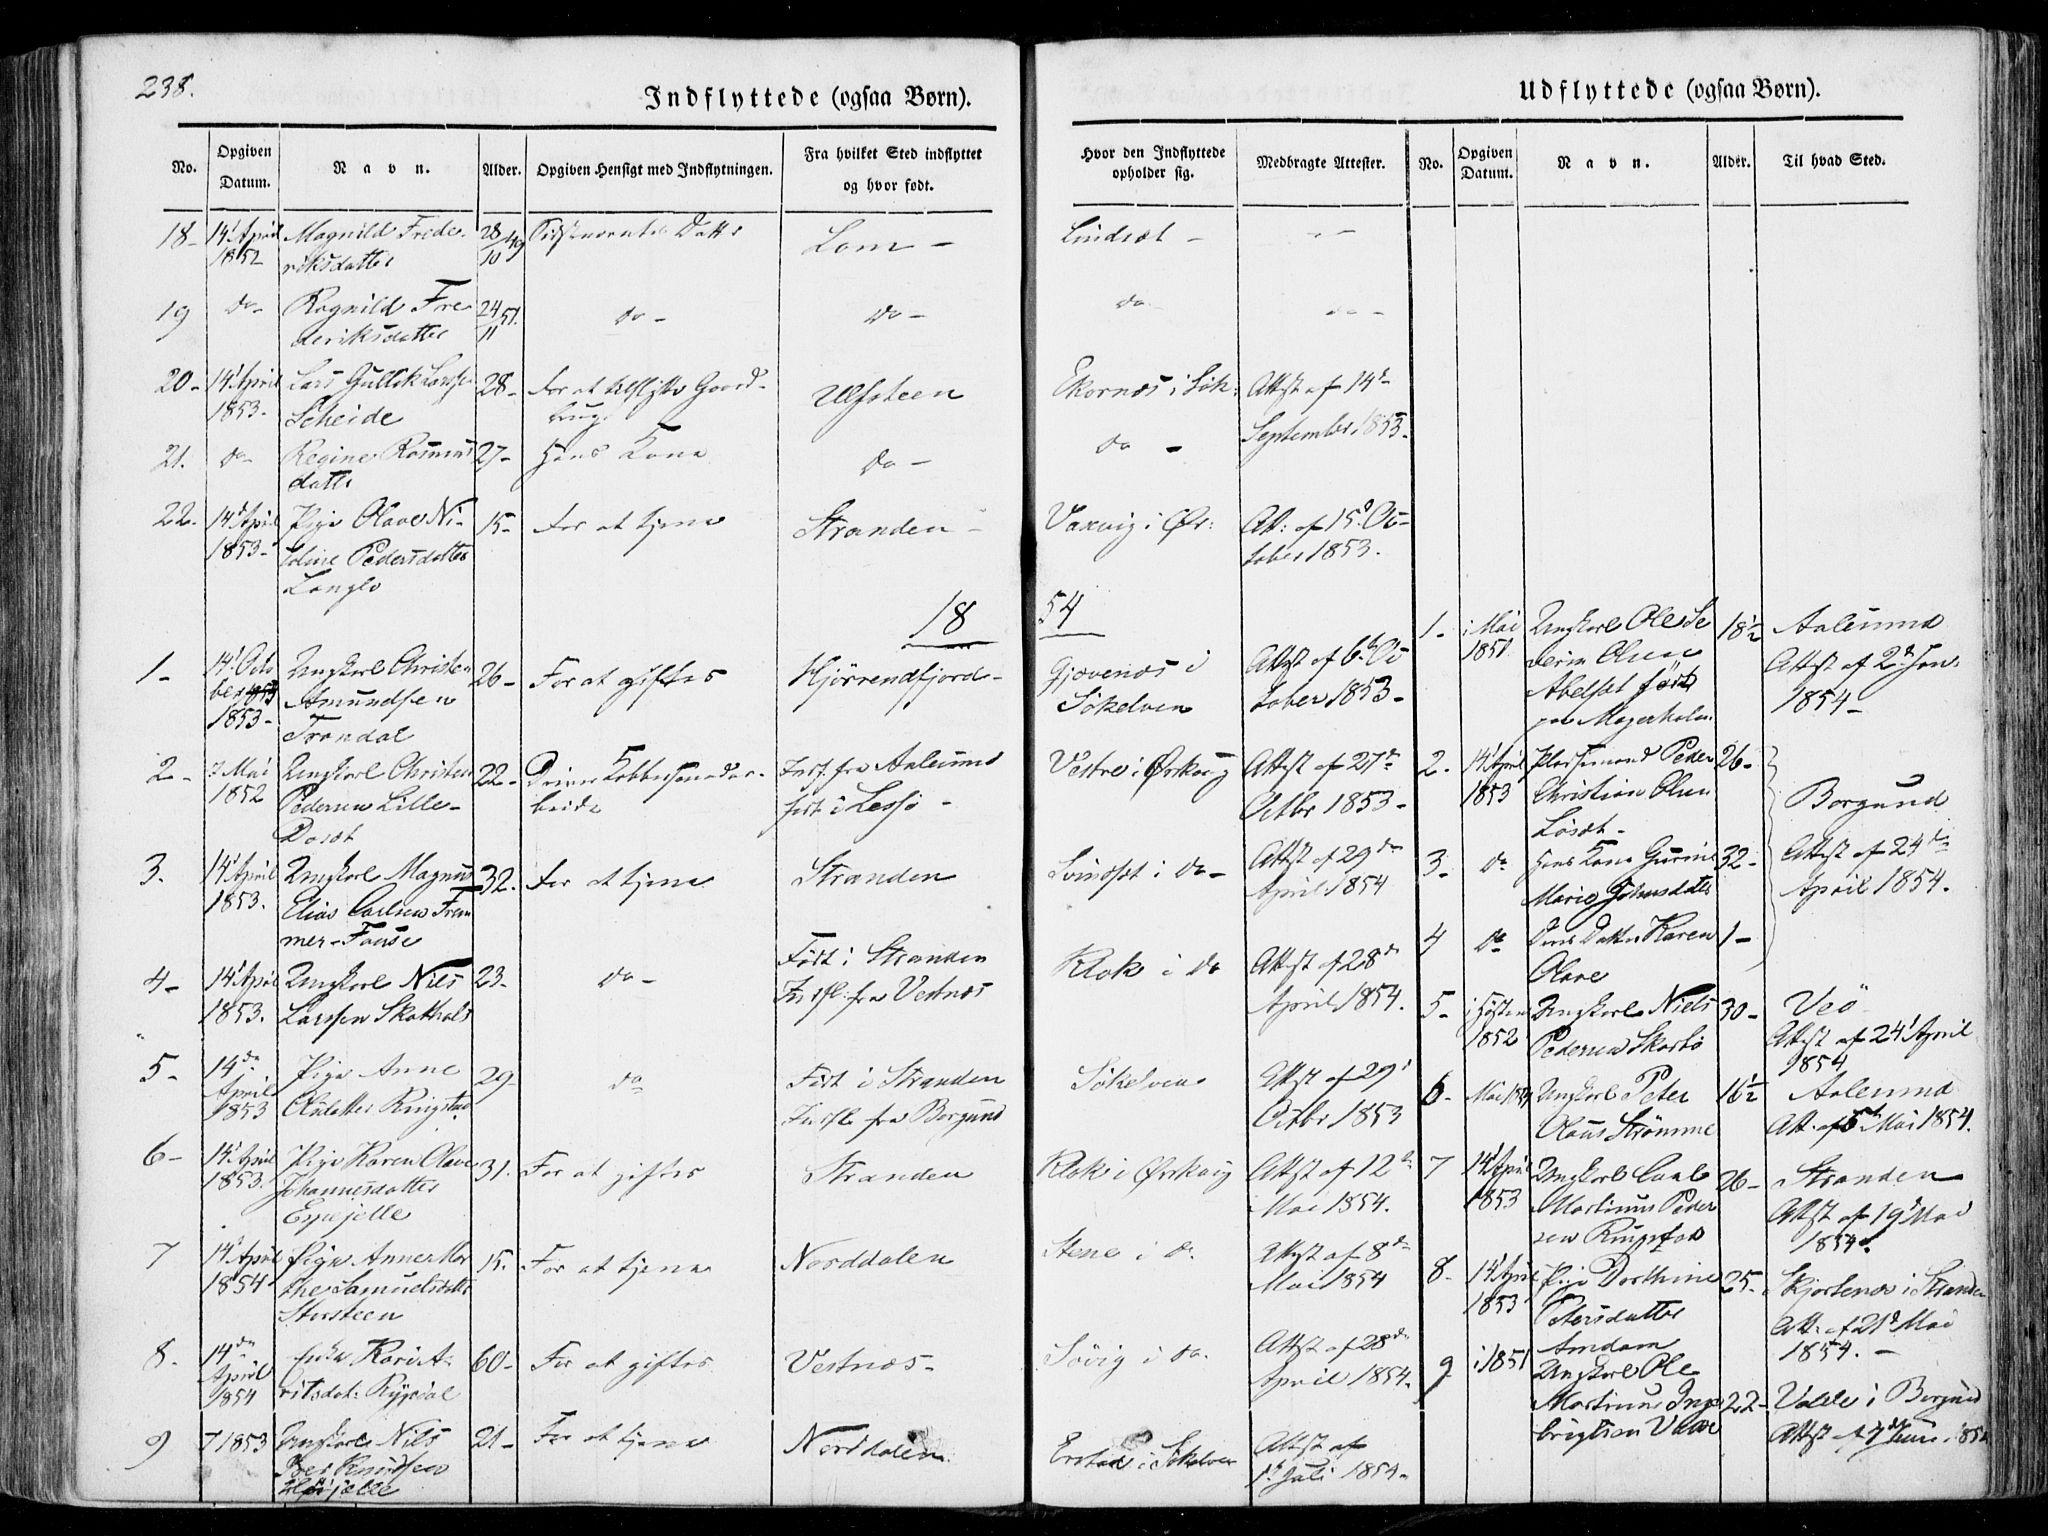 238.
Indflyttede (ogsaa Børn).
No.
Opgiven Datum.
Navn.
Alder.
Opgiven Hensigt med Indflytningen.
Fra hvilket Sted indflyttet og hvor født.
Hvor den Indflyttede opholder sig.
Medbragte Attester.
18- 14' April Magnild Frede- 28/10 49 Datter Lom - Lindset -
1852 riksdatter
19 do- Ragnild Fre 24/11 51. do- do- do- do-
deriksdatter
20- 14' April Lars Gullik Larssen 28- For at Gaard- Ulfsteen Ekornæs i Søk: Attest af 14de
1853- Scheide brug September 1853.
21. do- Regine Rasmus 27- Hans Kone do- do-
datter
22. 14' April Pige Olave Ni- 15- For at tjene Stranden- Vaxvig i Ør: Att: af 15d Oc-
1853- coline Pedersdatter tober 1853.
Langlo
1854
1- 14' Octo Ungkarl Christen 26- For at giftes Hjørrendfjord- Gjævenæs i Attest af 6te Oc
ber Amundsen Søkelven tober 1853-
1853- Trandal
2- 3 Mai Ungkarl Christen 22- Indf. fra Aalesund Vestre i Ørskoug Attest af 27de
1852 Pedersen Lille- beide født i Lessø- Octbr 1853-
3. 14' April Ungkarl Magnus 32. For at tjene Stranden i do- Attest af 29de
1853. Elias Carlsen Frem April 1854
mer-Fause
4- 14' April Ungkarl Niels 23- do- Født i Stranden Klok i do Attest af 28de
1853. Larssen Skothols Indfl: fra Vestnæs April 1854.
5- 14de Pige Anne 29- do Født i Stranden Søkelven Attest af 29'
April Olsdatter Ringstad Indfl. fra Borgund Octbr 1853
1853
6- 14' April Pige Karen Olave 31. For at giftes Stranden Klok i Ørskoug Attest af 12te
1853. Johannesdatter Mai 1854.
Espejelle
7 14' April Pige Anne Mar 15. For at tjene Norddalen Stene i do. Attest af 8de
1854 the Samuelsdatter Mai 1854
Storsteen
8. 14de Enke Kari A- 60- For at giftes Vestnæs- Søvig i do. Attest af 28de
April ritsdat: Rypdal April 1854.
1854
9 1853 Ungkarl Nils 21- For at tjene Norddalen i Søkelven Attest af
Iver Knudsen 1te Juli 1854-
Udflyttede (ogsaa Børn).
No.
Opgiven Datum.
Navn.
Alder.
Til hvad Sted.
1- i Mai Ungkarl Ole Se 18½ Aalesund
1851. verin Olsen Attest af 2d Jan.
Abelset født 1854-
paa Magerholm
2. 14' April Peder 26- Borgund
1853 Christian Olsen
Løset-
3- do Hans Kone Gurine 32- Attest af 24de
Marie Johnsdatter April 1854.
4 do Deres Datter Karen 1-
Olave
5- i Høsten Ungkarl Niels 30- Veø
1852 Pedersen Skorbø Attest af 24' April
1854
6- Mai Ungkarl Peter 16½ Aalesund
Olaus Strømme Att. af 5t Mai 1854.
7 14' April Ungkarl Carl 26- Stranden
1853 Martinus Peder Attest af 19' Mai
sen 1854.
8. 14' April Pige Dorthine 25- Skjortenæs i Stranden
1853 Petersdatter Att. af 21d Mai
Amdam 1854.-
9 i 1851 Ungkarl Ole
Martinus Inge 22- Valde i Borgund
brigtsen Attest af 7de Juni